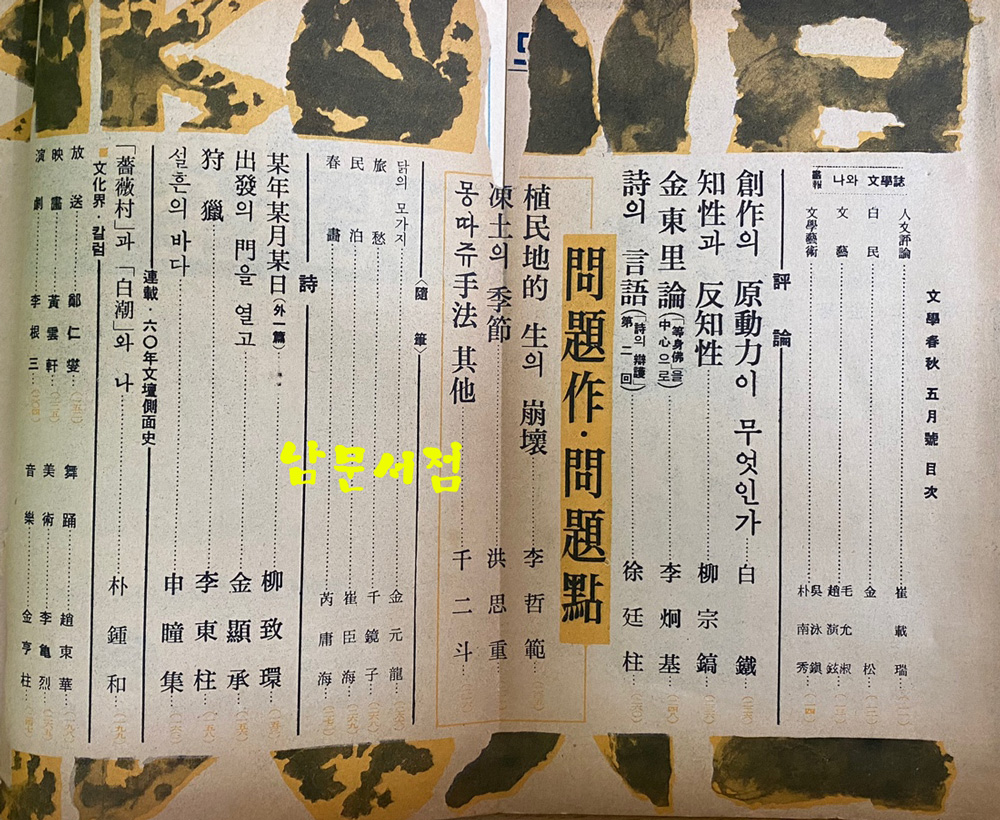 文學春秋 五月號 目次
畵報 나와 文學誌
人文評論 崔載瑞
白民 金松
文藝 毛允淑 趙演鉉
文學藝術 吳泳鎭 朴南秀
評論
創作의 原動力이 무엇인가 白鐵
知性과 反知性 柳宗鎬
金東里論(「等身佛」을 中心으로) 李炯基
詩의 言語(「詩의 辯護」 第二回) 徐廷柱
問題作·問題點
植民地的 生의 崩壞 李哲範
凍土의 季節 洪思重
몽따쥬手法 其他 千二斗
〈隨筆〉
닭의 모가지 金元龍
旅愁 千鏡子
民泊 崔臣海
春畵 芮庸海
詩
某年某月某日(外一篇) 柳致環
出發의 門을 열고 金顯承
狩獵 李東柱
설흔의 바다 申瞳集
連載·六○年文壇側面史
「薔薇村」과 「白潮」와 나 朴鍾和
文化界·칼럼
放送 鄭仁燮
映畵 黃雲軒
演劇 李根三
舞踊 趙東華
美術 李龜烈
音樂 金亨柱
남문서점